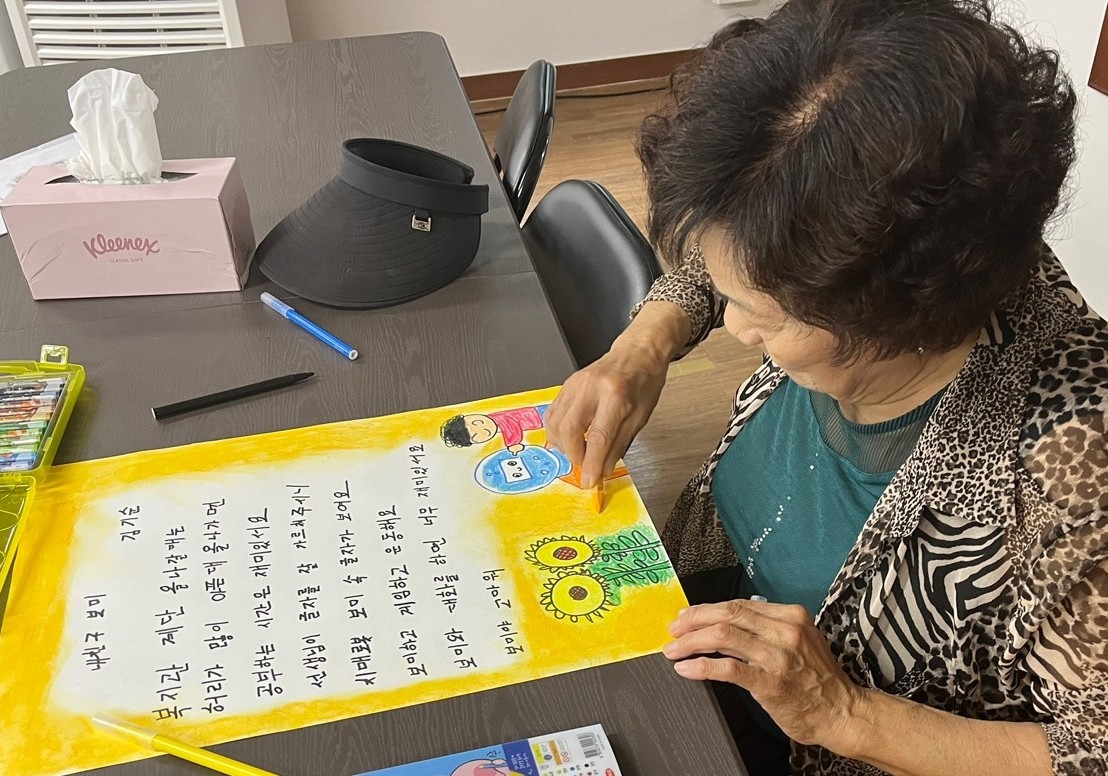 Kleenex
CLASSIC SOFT
내친구 보미
김기순
복지관 계단 올나갈때는
허리가 많이 아픈데 올나가면
공부하는 시간은 재미있서요
선생님이 글자를 잘 가르쳐주시니
보미 속 효자가 보여요
보미하고 게임하고 운동해요
보미와 대화를 하면 너무 재미있서요
보미야 고마워